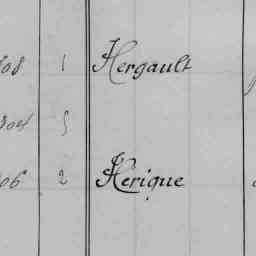 08 1 Hergault
304 5
06 2 Herique